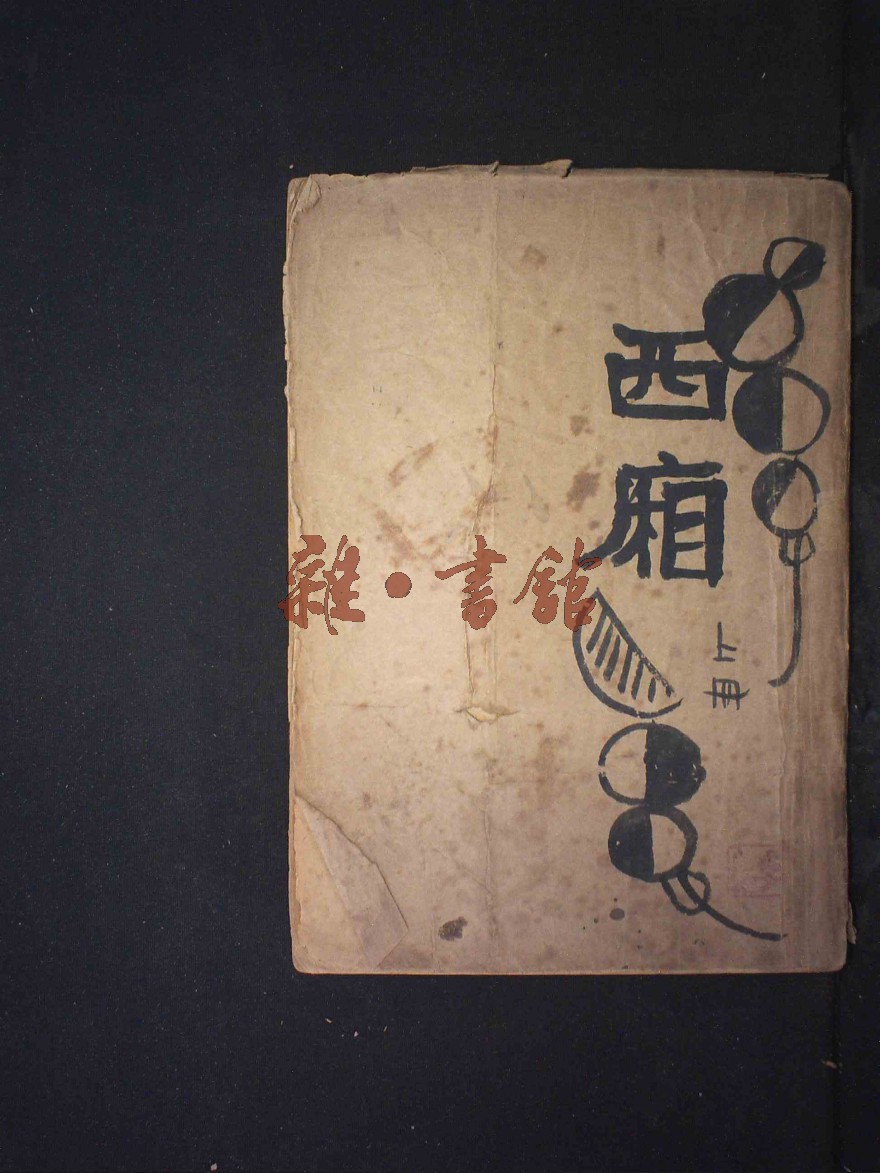 西廂
上冊
雜·書館